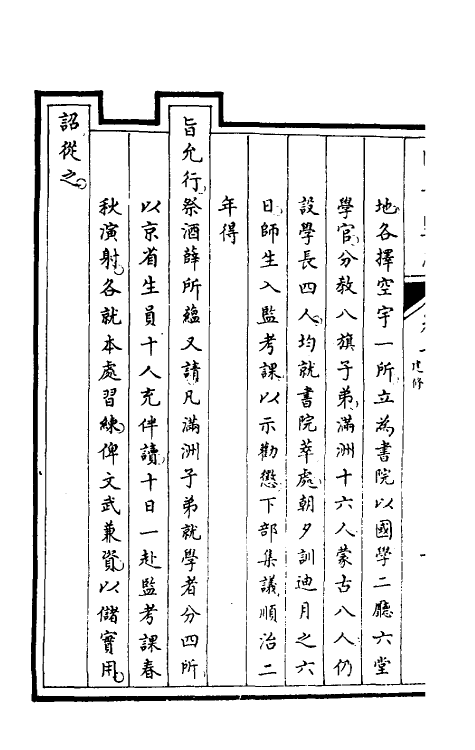 地各擇空宇一所立為書院以國學二廳六堂
學官分教八旗子弟滿洲十六人蒙古八人仍
設學長四人均就書院萃處朝夕訓迪月之六
日師生入監考課以示勸懲下部集議順治二
年得
旨允行祭酒薛所蘊又請凡滿洲子弟就學者分四所
以京省生員十人充伴讀十日一赴監考課春
秋演射各就本處習練俾文武兼資以儲實用
詔從之